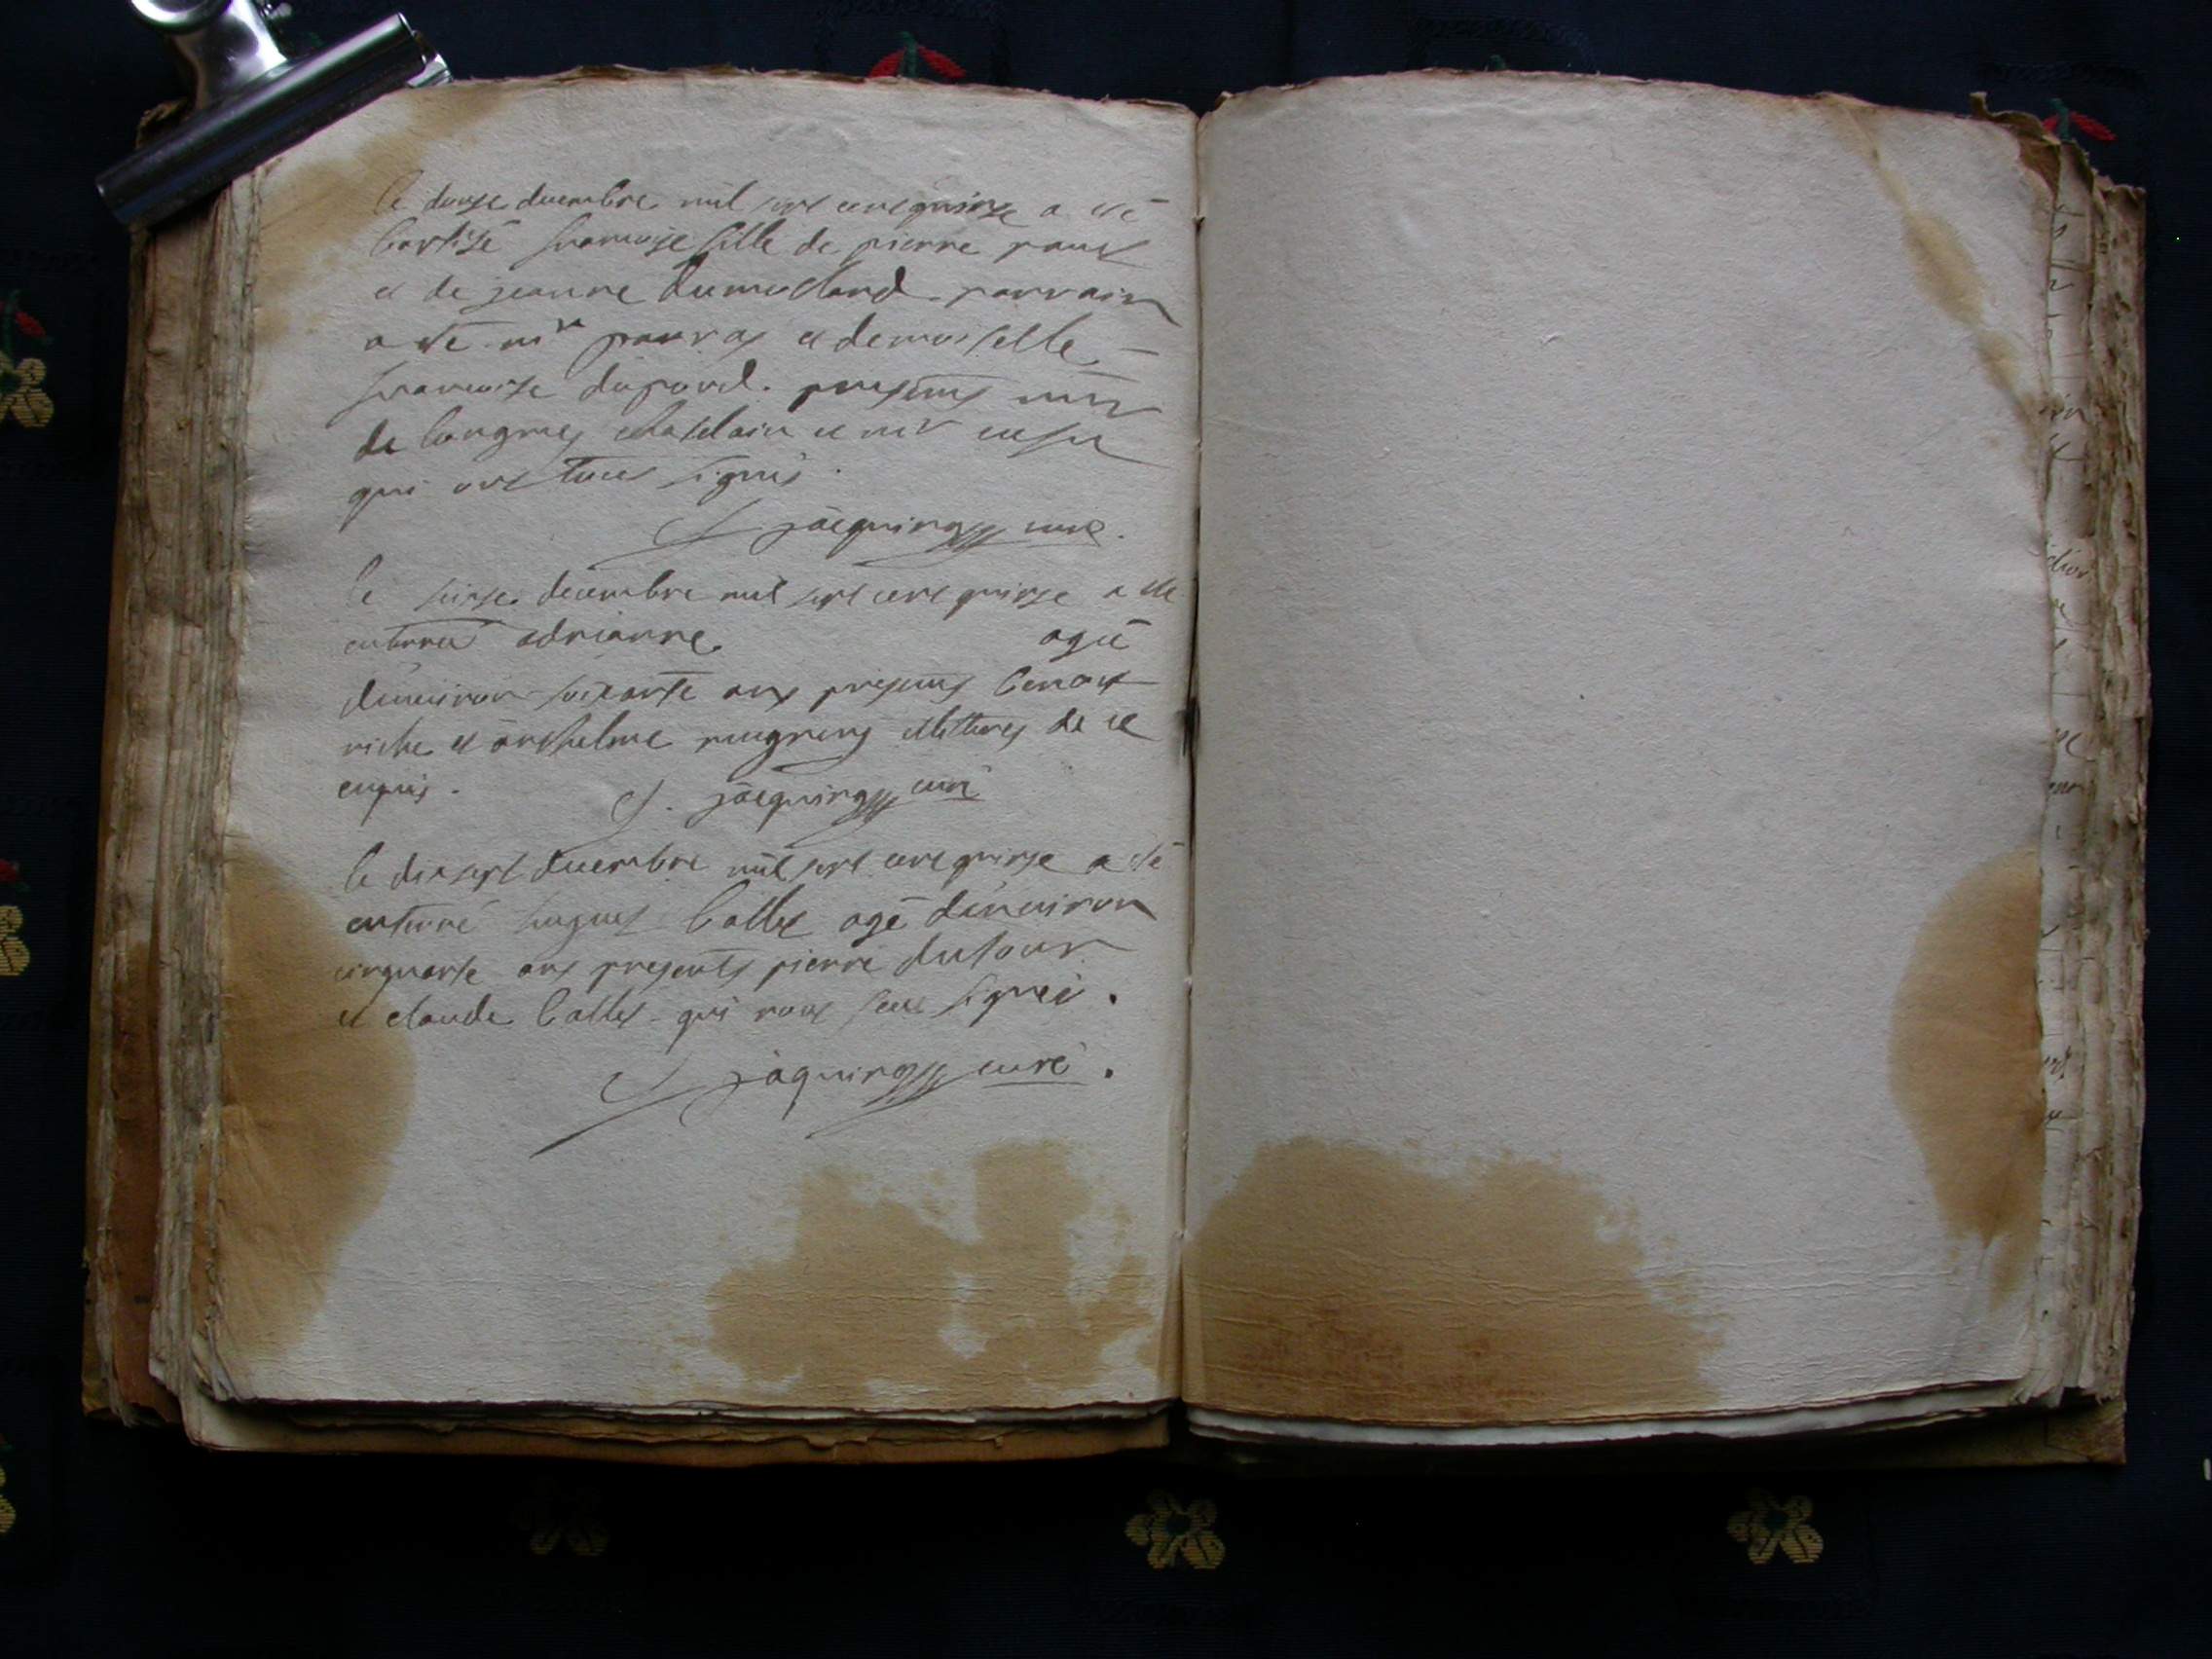 le douse decembre mil sept cent quinze a eté
bartisé francoise fille de pierre
et de jeanne dumollard parrain
a eté mr et demoiselle
francoise dupord. presents
de longme chatelain et mr
qui ont tous signés.
jacquing curé.
le seize decembre mil sept cent quinze a ete
enterreé adrianne ageé
denuiron soixante ans presents benoit
riche et anthelme de ce
cuqui. jacquing curé
le dixsept decembre mil sept cent quinze a eté
enterré hugues ballet agé denuiron
cinquante ans presents pierre dufour
et claude ballet qui nont seu signer.
jaquing curé.